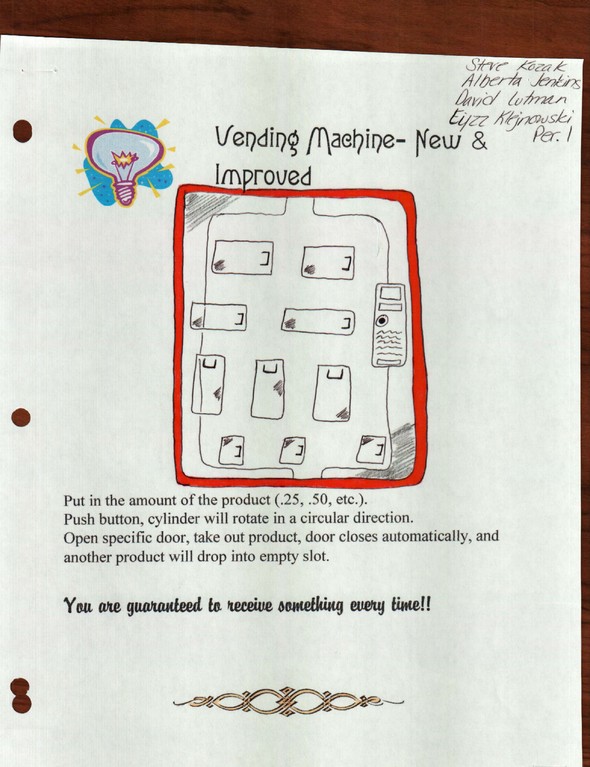 Steve Kozak
Alberta Jenkins
David Lutman
Klejnowski
Per. 1
Vending Machine- New &
Improved
Put in the amount of the product (.25, .50, etc.).
Push button, cylinder will rotate in a circular direction.
Open specific door, take out product, door closes automatically, and
another product will drop into empty slot.
You are guaranteed to receive something every time!!